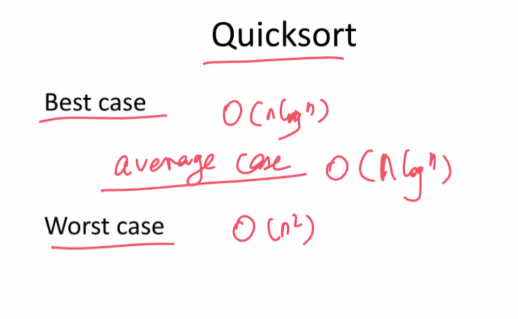 Quicksort
Best case O(n log n)
average case O(n log n)
Worst case O(n²)